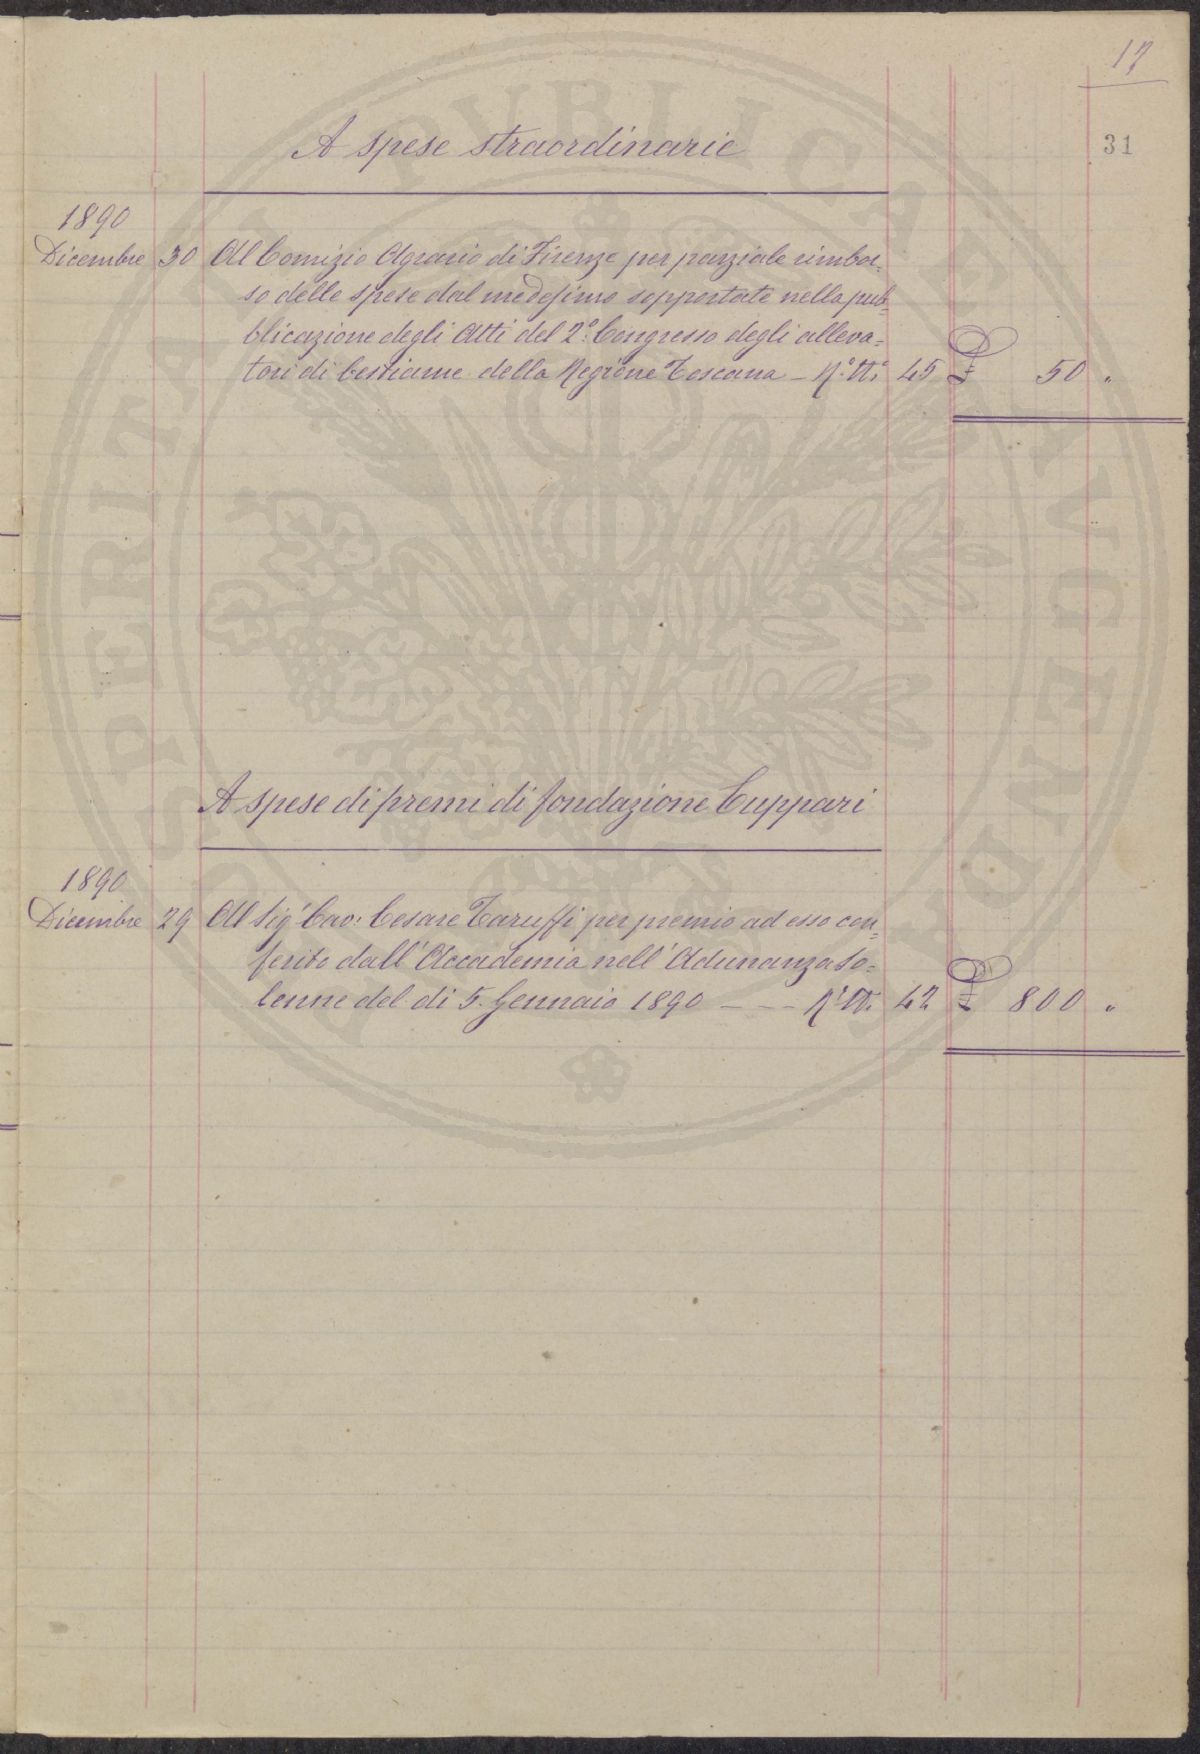 17
31
A spese straordinarie
1890
Dicembre 30 Al Comizio Agrario di Firenze per parziale rimbor=
so delle spese dal medesimo sopportate nella pub=
blicazione degli Atti del 2°: Congresso degli alleva=
tori di bestiame della Regione Toscana - 45 £ 50 "
A spese di premi di fondazione Cuppari
1890
Dicembre 29 Al Sigr Cav: Cesare Taruffi per premio ad esso con=
ferito dall'Accademia nell'Adunanza So=
lenne del di 5. Gennaio 1890 — — 42 £ 800 "
PROSPERITATI PVBLICAE AVGENDAE